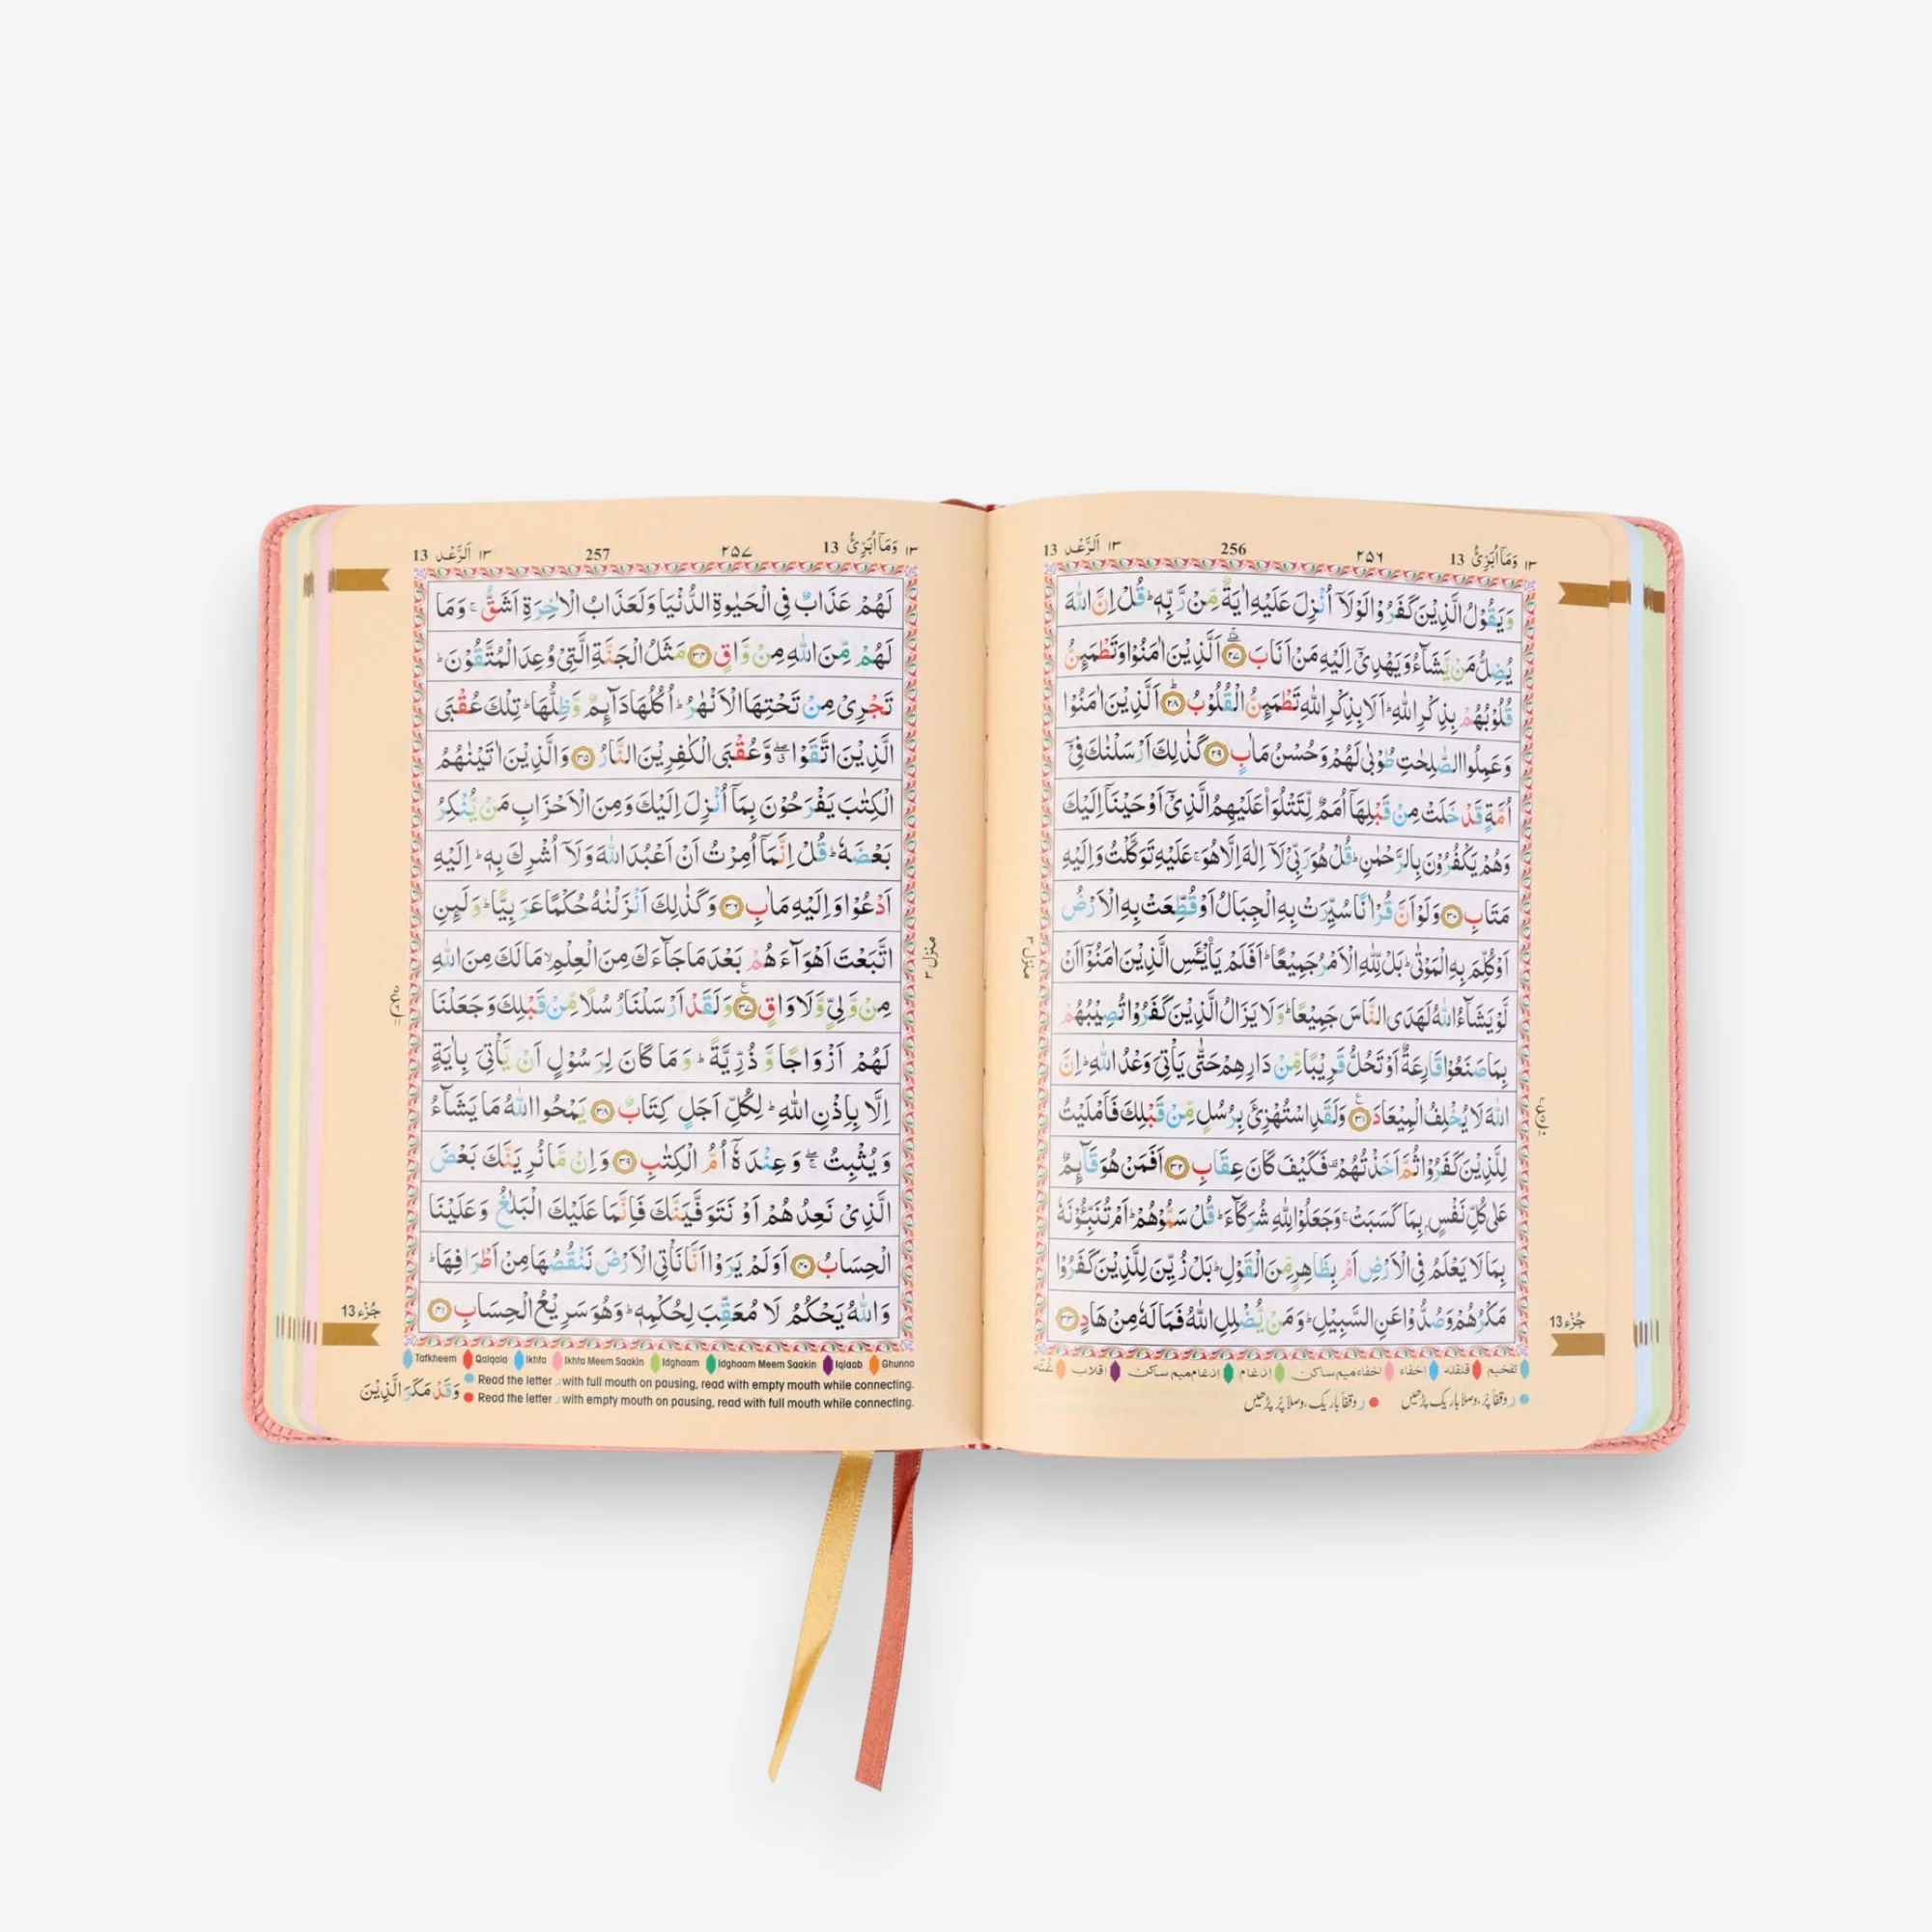 ١٣ وَمَآ اُبَرِّئُ 13
٢٥٦
256
١٣ اَلرَّعْد 13
وَيَقُوْلُ الَّذِيْنَ كَفَرُوْا لَوْلَآ اُنْزِلَ عَلَيْهِ اٰيَةٌ مِّنْ رَّبِّهٖ ؕ قُلْ اِنَّ اللّٰهَ
يُضِلُّ مَنْ يَّشَآءُ وَيَهْدِيْٓ اِلَيْهِ مَنْ اَنَابَ ﴿٢٧﴾ اَلَّذِيْنَ اٰمَنُوْا وَتَطْمَىِٕنُّ
قُلُوْبُهُمْ بِذِكْرِ اللّٰهِ ؕ اَلَا بِذِكْرِ اللّٰهِ تَطْمَىِٕنُّ الْقُلُوْبُ ﴿٢٨﴾ اَلَّذِيْنَ اٰمَنُوْا
وَعَمِلُوا الصّٰلِحٰتِ طُوْبٰى لَهُمْ وَحُسْنُ مَاٰبٍ ﴿٢٩﴾ كَذٰلِكَ اَرْسَلْنٰكَ فِيْٓ
اُمَّةٍ قَدْ خَلَتْ مِنْ قَبْلِهَآ اُمَمٌ لِّتَتْلُوَا۟ عَلَيْهِمُ الَّذِيْٓ اَوْحَيْنَآ اِلَيْكَ
وَهُمْ يَكْفُرُوْنَ بِالرَّحْمٰنِ ؕ قُلْ هُوَ رَبِّيْ لَآ اِلٰهَ اِلَّا هُوَ ۚ عَلَيْهِ تَوَكَّلْتُ وَاِلَيْهِ
مَتَابِ ﴿٣٠﴾ وَلَوْ اَنَّ قُرْاٰنًا سُيِّرَتْ بِهِ الْجِبَالُ اَوْ قُطِّعَتْ بِهِ الْاَرْضُ
اَوْ كُلِّمَ بِهِ الْمَوْتٰى ؕ بَلْ لِّلّٰهِ الْاَمْرُ جَمِيْعًا ؕ اَفَلَمْ يَا۟يْـَٔسِ الَّذِيْنَ اٰمَنُوْٓا اَنْ
لَّوْ يَشَآءُ اللّٰهُ لَهَدَى النَّاسَ جَمِيْعًا ؕ وَلَا يَزَالُ الَّذِيْنَ كَفَرُوْا تُصِيْبُهُمْ
بِمَا صَنَعُوْا قَارِعَةٌ اَوْ تَحُلُّ قَرِيْبًا مِّنْ دَارِهِمْ حَتّٰى يَاْتِيَ وَعْدُ اللّٰهِ ؕ اِنَّ
اللّٰهَ لَا يُخْلِفُ الْمِيْعَادَ ﴿٣١﴾ وَلَقَدِ اسْتُهْزِئَ بِرُسُلٍ مِّنْ قَبْلِكَ فَاَمْلَيْتُ
لِلَّذِيْنَ كَفَرُوْا ثُمَّ اَخَذْتُهُمْ ۫ فَكَيْفَ كَانَ عِقَابِ ﴿٣٢﴾ اَفَمَنْ هُوَ قَآىِٕمٌ
عَلٰى كُلِّ نَفْسٍۭ بِمَا كَسَبَتْ ۚ وَجَعَلُوْا لِلّٰهِ شُرَكَآءَ ؕ قُلْ سَمُّوْهُمْ ؕ اَمْ تُنَبِّـُٔوْنَهٗ
بِمَا لَا يَعْلَمُ فِي الْاَرْضِ اَمْ بِظَاهِرٍ مِّنَ الْقَوْلِ ؕ بَلْ زُيِّنَ لِلَّذِيْنَ كَفَرُوْا
مَكْرُهُمْ وَصُدُّوْا عَنِ السَّبِيْلِ ؕ وَمَنْ يُّضْلِلِ اللّٰهُ فَمَا لَهٗ مِنْ هَادٍ ﴿٣٣﴾
جُزْء 13
منزل ٣
تفخیم قلقلہ اخفاء اخفاء میم ساکن ادغام ادغام میم ساکن اقلاب غُنّه
ر وقفاً پُر، وصلاً باریک پڑھیں ر وقفاً باریک، وصلاً پُر پڑھیں
١٣ وَمَآ اُبَرِّئُ 13
٢٥٧
257
١٣ اَلرَّعْد 13
لَهُمْ عَذَابٌ فِي الْحَيٰوةِ الدُّنْيَا وَلَعَذَابُ الْاٰخِرَةِ اَشَقُّ ۚ وَمَا
لَهُمْ مِّنَ اللّٰهِ مِنْ وَّاقٍ ﴿٣٤﴾ مَثَلُ الْجَنَّةِ الَّتِيْ وُعِدَ الْمُتَّقُوْنَ ؕ
تَجْرِيْ مِنْ تَحْتِهَا الْاَنْهٰرُ ؕ اُكُلُهَا دَآىِٕمٌ وَّظِلُّهَا ؕ تِلْكَ عُقْبَى
الَّذِيْنَ اتَّقَوْا ۖۗ وَّعُقْبَى الْكٰفِرِيْنَ النَّارُ ﴿٣٥﴾ وَالَّذِيْنَ اٰتَيْنٰهُمُ
الْكِتٰبَ يَفْرَحُوْنَ بِمَآ اُنْزِلَ اِلَيْكَ وَمِنَ الْاَحْزَابِ مَنْ يُّنْكِرُ
بَعْضَهٗ ؕ قُلْ اِنَّمَآ اُمِرْتُ اَنْ اَعْبُدَ اللّٰهَ وَلَآ اُشْرِكَ بِهٖ ؕ اِلَيْهِ
اَدْعُوْا وَاِلَيْهِ مَاٰبِ ﴿٣٦﴾ وَكَذٰلِكَ اَنْزَلْنٰهُ حُكْمًا عَرَبِيًّا ؕ وَلَىِٕنِ
اتَّبَعْتَ اَهْوَآءَهُمْ بَعْدَ مَا جَآءَكَ مِنَ الْعِلْمِ ۙ مَا لَكَ مِنَ اللّٰهِ
مِنْ وَّلِيٍّ وَّلَا وَاقٍ ﴿٣٧﴾ وَلَقَدْ اَرْسَلْنَا رُسُلًا مِّنْ قَبْلِكَ وَجَعَلْنَا
لَهُمْ اَزْوَاجًا وَّ ذُرِّيَّةً ؕ وَمَا كَانَ لِرَسُوْلٍ اَنْ يَّاْتِيَ بِاٰيَةٍ
اِلَّا بِاِذْنِ اللّٰهِ ؕ لِكُلِّ اَجَلٍ كِتَابٌ ﴿٣٨﴾ يَمْحُوا اللّٰهُ مَا يَشَآءُ
وَيُثْبِتُ ۖۚ وَعِنْدَهٗٓ اُمُّ الْكِتٰبِ ﴿٣٩﴾ وَاِنْ مَّا نُرِيَنَّكَ بَعْضَ
الَّذِيْ نَعِدُهُمْ اَوْ نَتَوَفَّيَنَّكَ فَاِنَّمَا عَلَيْكَ الْبَلٰغُ وَعَلَيْنَا
الْحِسَابُ ﴿٤٠﴾ اَوَلَمْ يَرَوْا اَنَّا نَاْتِي الْاَرْضَ نَنْقُصُهَا مِنْ اَطْرَافِهَا ؕ
وَاللّٰهُ يَحْكُمُ لَا مُعَقِّبَ لِحُكْمِهٖ ؕ وَهُوَ سَرِيْعُ الْحِسَابِ ﴿٤١﴾
جُزْء 13
منزل ٣
Tafkheem Qalqala Ikhfa Ikhfa Meem Saakin Idghaam Idghaam Meem Saakin Iqlaab Ghunna
Read the letter ر with full mouth on pausing, read with empty mouth while connecting.
Read the letter ر with empty mouth on pausing, read with full mouth while connecting.
وَقَدْ مَكَرَ الَّذِيْنَ